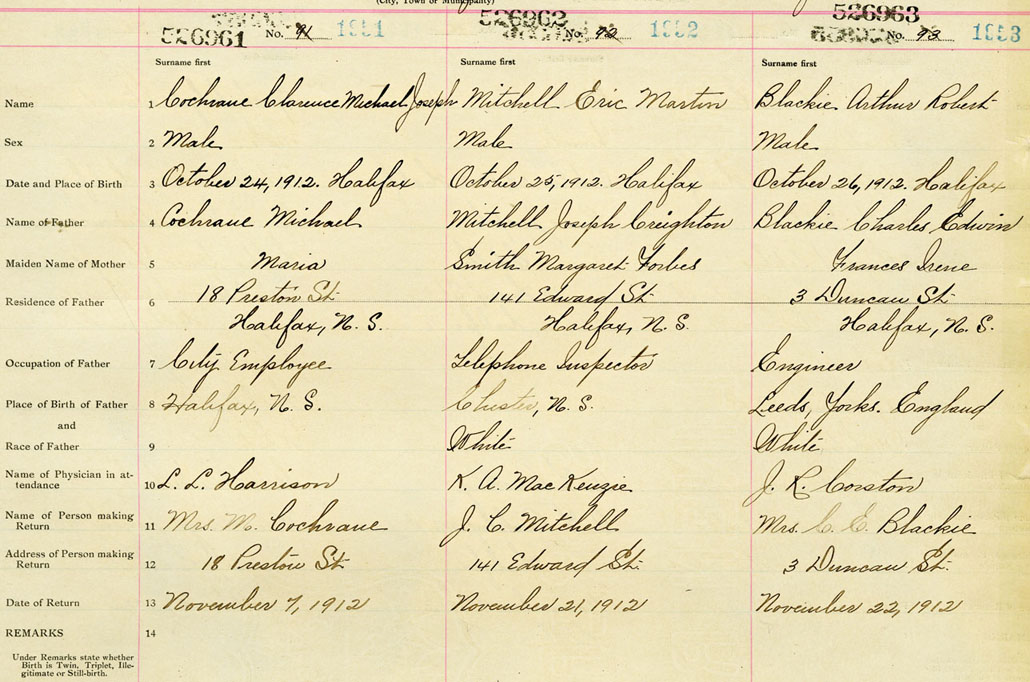 (City, Town or Municipality)
526961 No. 91 1951 526962 No. 92 1952 526963 No. 93 1953
Surname first Surname first Surname first
Name 1 Cochrane Clarence Michael Joseph Mitchell Eric Martin Blackie Arthur Robert
Sex 2 Male Male Male
Date and Place of Birth 3 October 24, 1912. Halifax October 25, 1912. Halifax October 26, 1912. Halifax
Name of Father 4 Cochrane Michael Mitchell Joseph Creighton Blackie Charles Edwin
Maiden Name of Mother 5 Maria Smith Margaret Forbes Frances Irene
Residence of Father 6 18 Preston St. 141 Edward St. 3 Duncan St.
Halifax, N. S. Halifax, N. S. Halifax, N. S.
Occupation of Father 7 City Employee Telephone Inspector Engineer
Place of Birth of Father 8 Halifax, N. S. Chester, N. S. Leeds, Yorks. England
and
Race of Father 9 White White
Name of Physician in at-
tendance 10 L. L. Harrison K. A. MacKenzie J. R. Corston
Name of Person making
Return 11 Mrs. M. Cochrane J. C. Mitchell Mrs. C. E. Blackie
Address of Person making
Return 12 18 Preston St. 141 Edward St. 3 Duncan St.
Date of Return 13 November 7, 1912 November 21, 1912 November 22, 1912
REMARKS 14
Under Remarks state whether
Birth is Twin, Triplet, Ille-
gitimate or Still-birth.